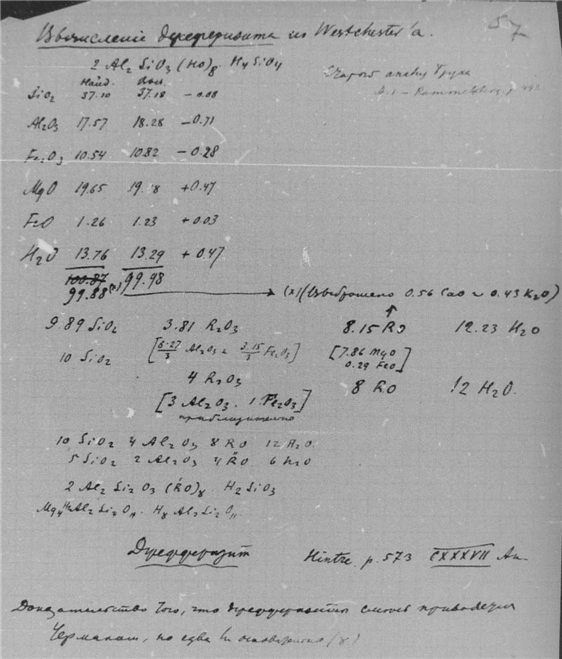 57
Вычисленіе джефферизита из Westchester'а.
2 Al₂ SiO₃ (HO)₈ H₄ SiO₄
Найд. Выч.
SiO₂ 37.10 37.18 – 0.08
Al₂O₃ 17.57 18.28 – 0.71
Fe₂O₃ 10.54 10.82 – 0.28
MgO 19.65 19.18 + 0.47
FeO 1.26 1.23 + 0.03
H₂O 13.76 13.29 + 0.47
100.87 99.98
99.88 (x) → (x) (Выброшено 0.56 CaO и 0.43 K₂O)
9.89 SiO₂ 3.81 R₂O₃ 8.15 RO 12.23 H₂O
10 SiO₂ Al₂O₃ Fe₂O₃ [7.86 MgO
0.29 FeO]
4 R₂O₃ 8 RO 12 H₂O.
[3 Al₂O₃ . 1 Fe₂O₃]
приблизительно
10 SiO₂ 4 Al₂O₃ 8 RO 12 H₂O
5 SiO₂ 2 Al₂O₃ 4 RO 6 H₂O
2 Al₂ Si₂O₃ (RO)₈ . H₂ SiO₃
Джефферизит Hintze p. 573 CXXXVII Ан.
Доказательство того, что джефферизит
Чермаком, но едва ли